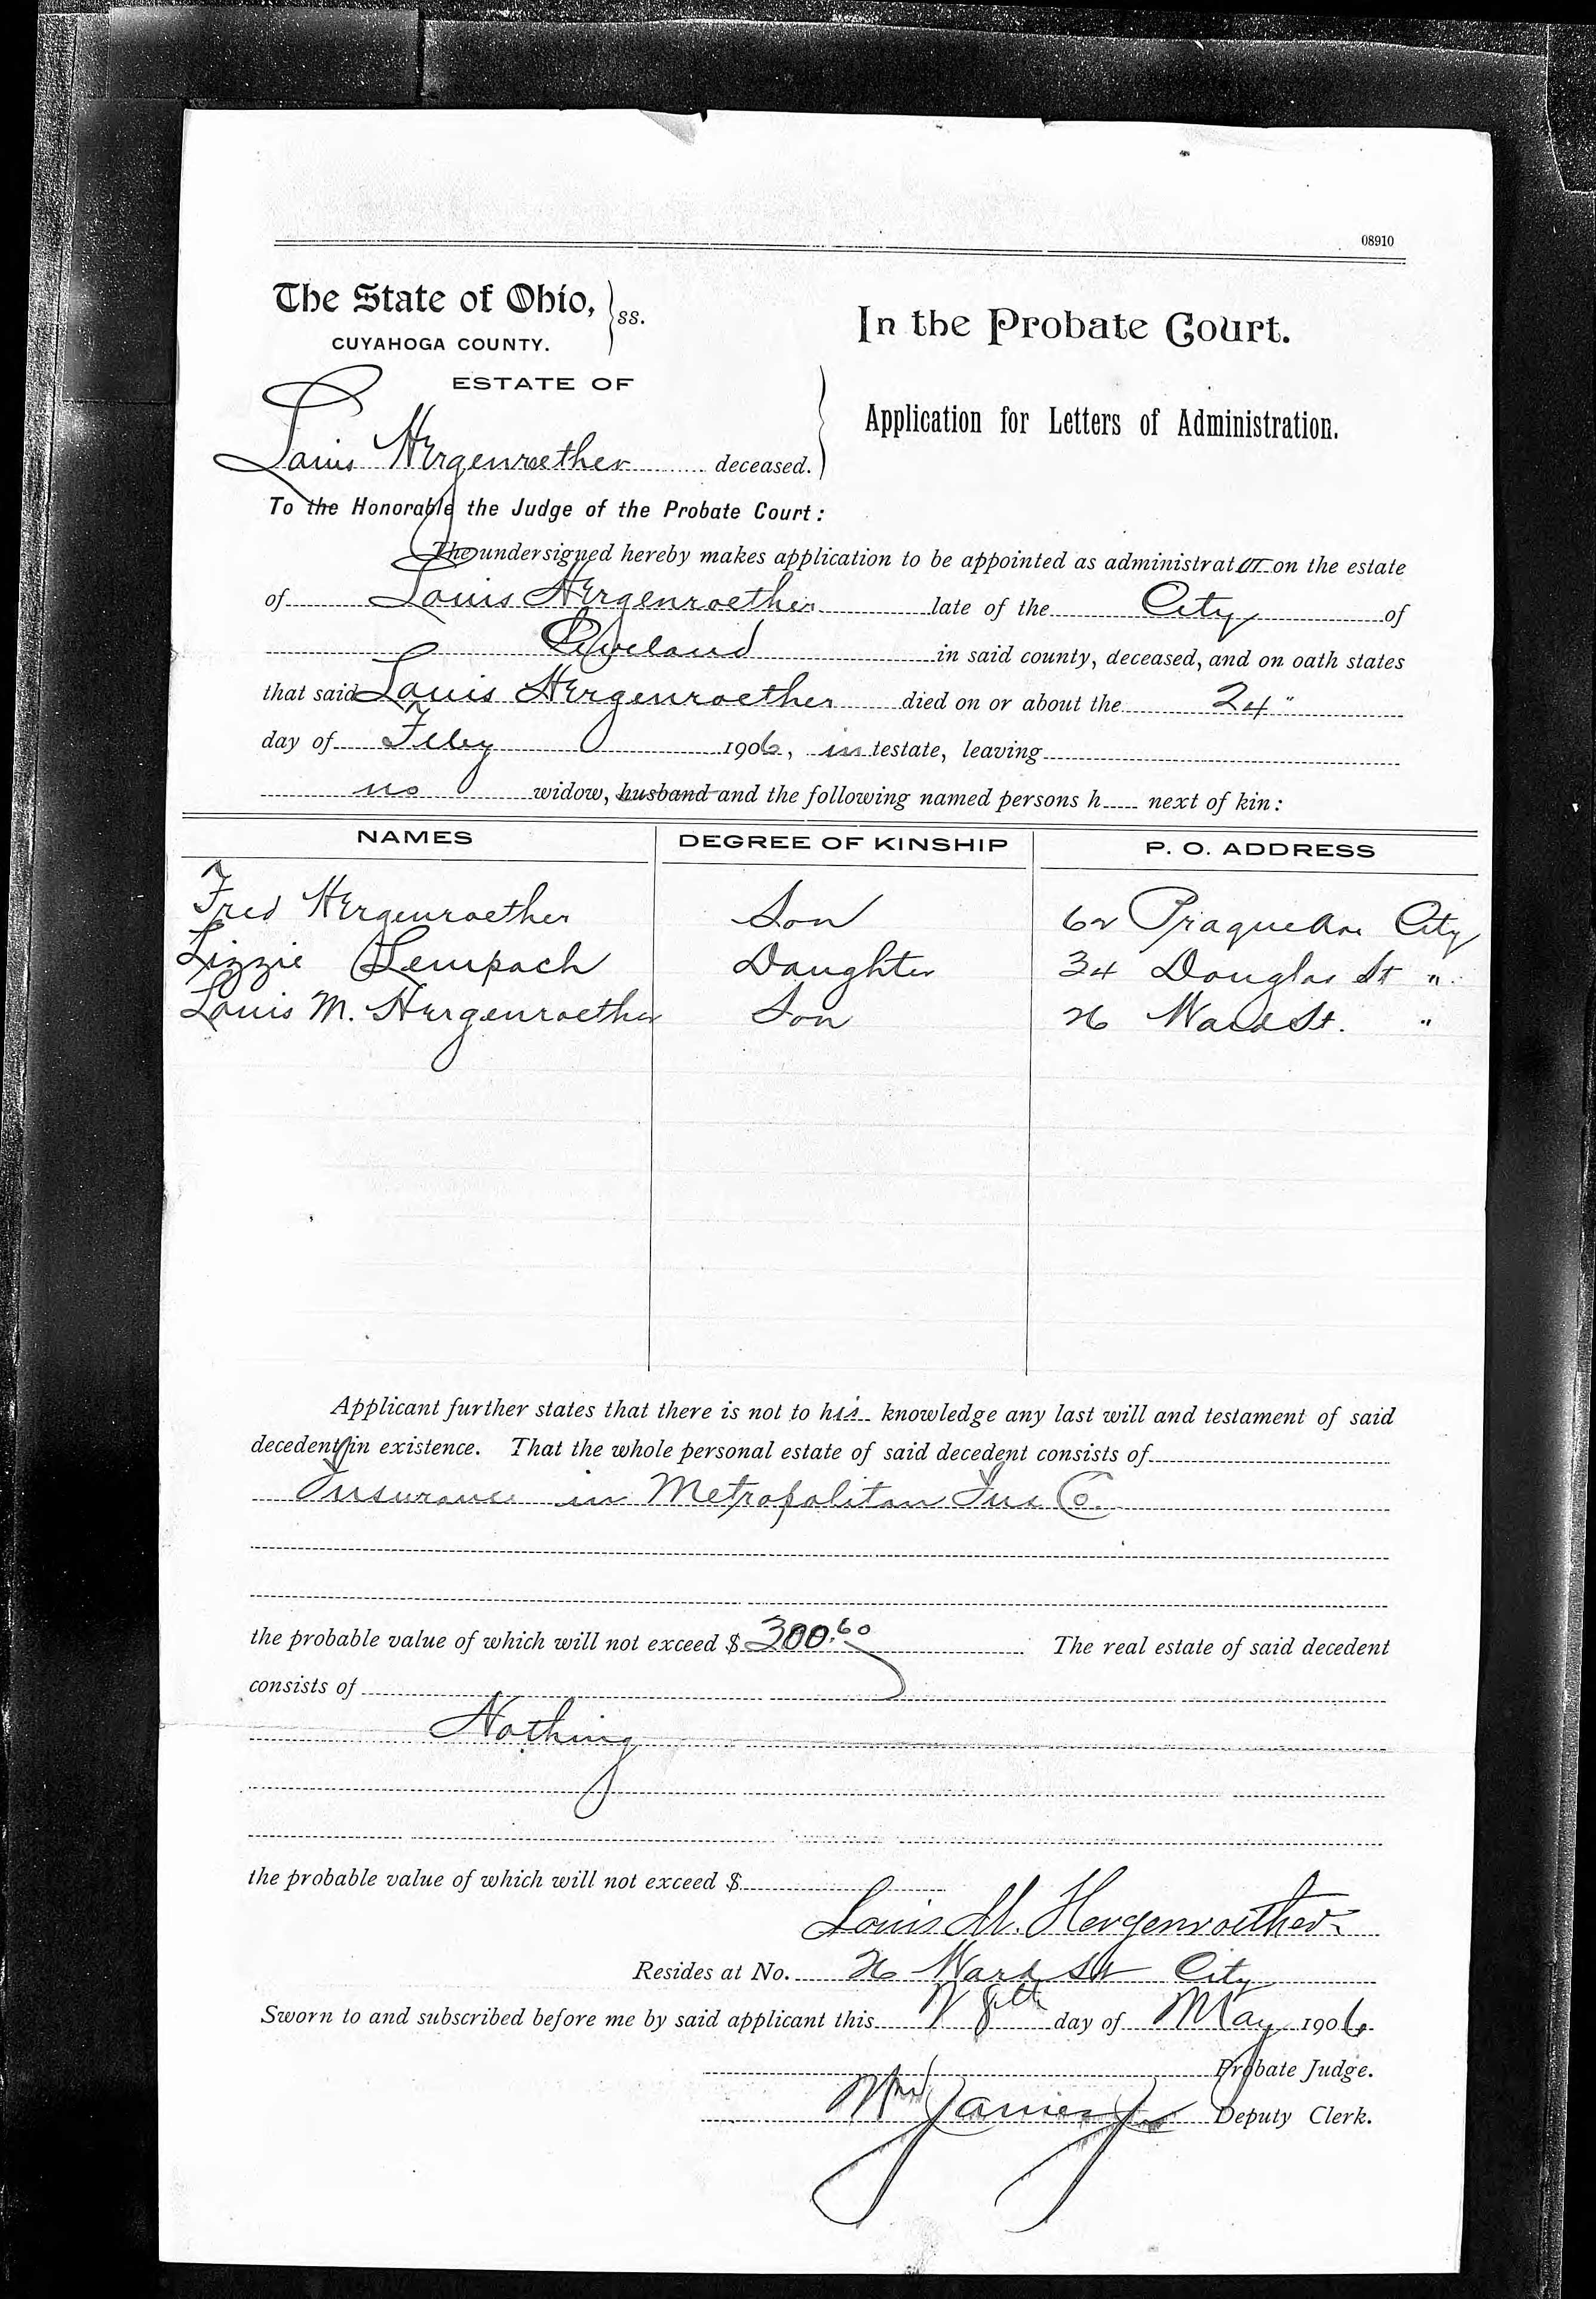 08910
The State of Ohio, } ss.
CUYAHOGA COUNTY.
In the Probate Court.
ESTATE OF
Louis Hergenroether deceased. }
Application for Letters of Administration.
To the Honorable the Judge of the Probate Court:
The undersigned hereby makes application to be appointed as administrator on the estate
of Louis Hergenroether late of the City of
Cleveland in said county, deceased, and on oath states
that said Louis Hergenroether died on or about the 24"
day of Feby 1906, intestate, leaving
no widow, husband and the following named persons h next of kin:
NAMES DEGREE OF KINSHIP P. O. ADDRESS
Fred Hergenroether Son 62 Prague Ave City
Lizzie Lempach Daughter 34 Douglas St "
Louis M. Hergenroether Son 26 Ward St. "
Applicant further states that there is not to his knowledge any last will and testament of said
decedent in existence. That the whole personal estate of said decedent consists of
Insurance in Metropolitan Ins Co.
the probable value of which will not exceed $ 300.60 The real estate of said decedent
consists of
Nothing
the probable value of which will not exceed $
Louis M. Hergenroether
Resides at No. 26 Ward St City
Sworn to and subscribed before me by said applicant this 8th day of May 1906
Probate Judge.
Wm James Jr Deputy Clerk.